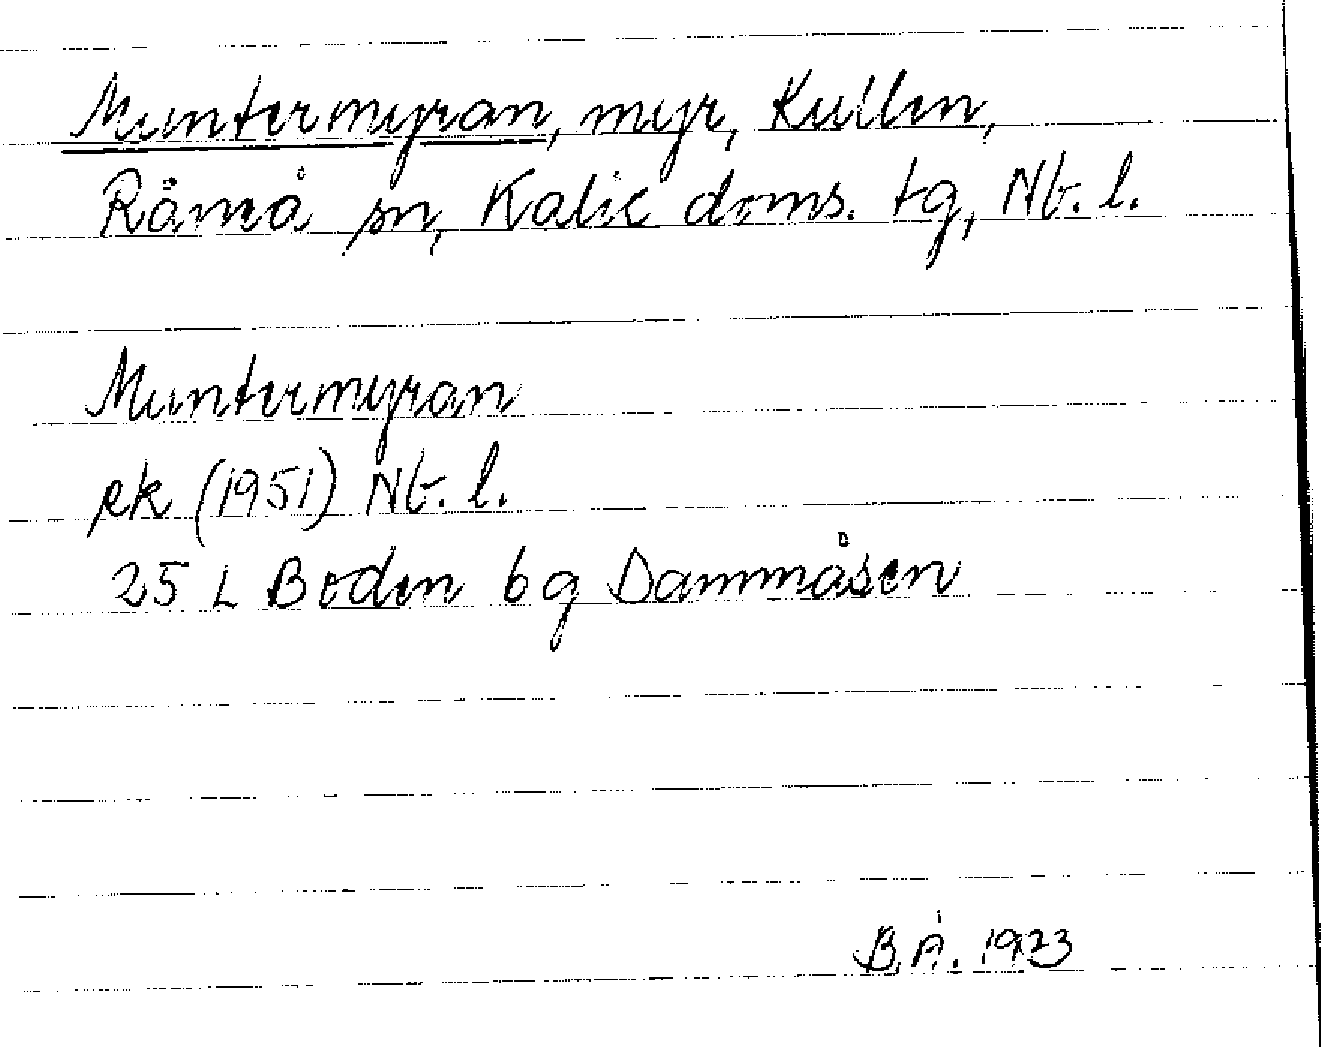 Muntermyran, myr, Kullen,
Råneå sn, Kalix doms. tg, Nb. l.
Muntermyran
ek (1951) Nb. l.
25 L Boden 6g Dammåsen
B.Å. 1973